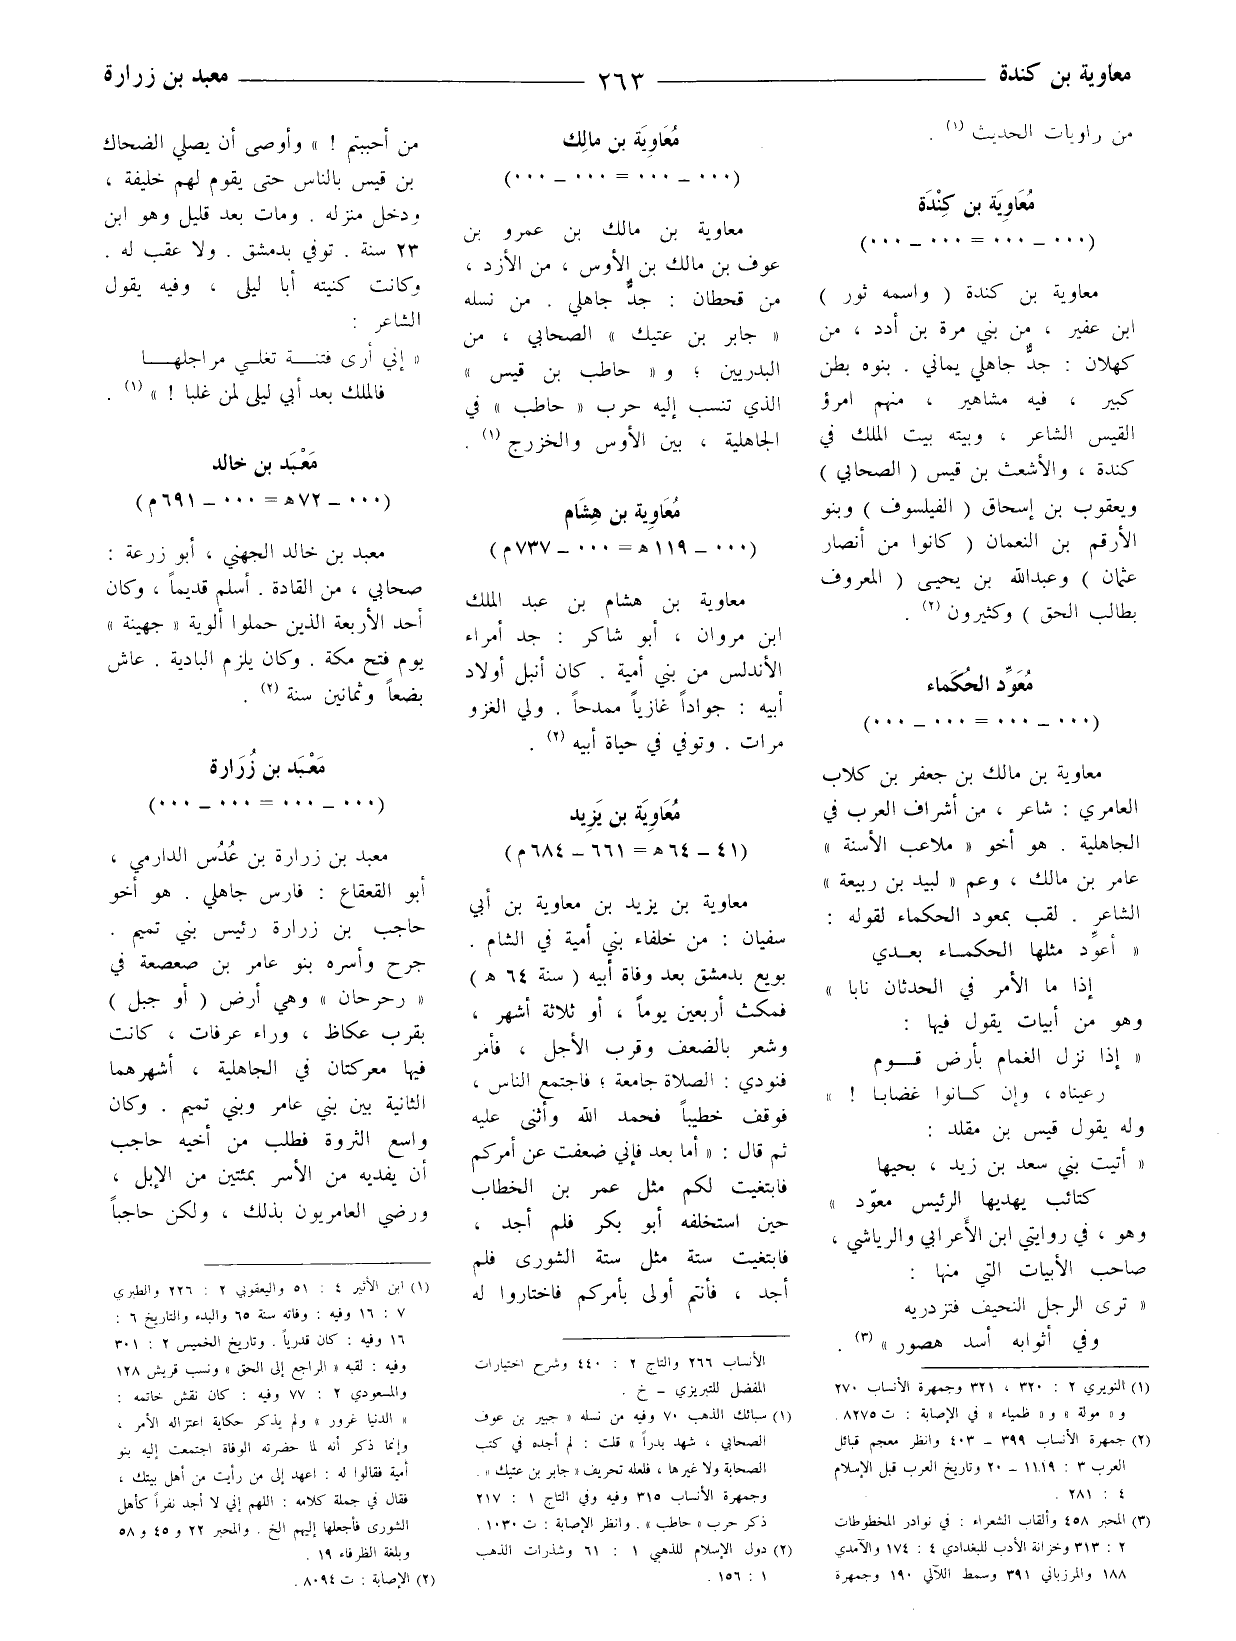 معاوية بن كندة ــــــــــ ٢٦٣ ــــــــــ معبد بن زرارة
من راويات الحديث (١) .
مُعَاوِيَة بن كِنْدَة
(٠٠٠ ــ ٠٠٠ = ٠٠٠ ــ ٠٠٠)
معاوية بن كندة ( واسمه ثور )
ابن عفير ، من بني مرة بن أدد ، من
كهلان : جدٌّ جاهلي يماني . بنوه بطن
كبير ، فيه مشاهير ، منهم امرؤ
القيس الشاعر ، وبيته بيت الملك في
كندة ، والأشعث بن قيس ( الصحابي )
ويعقوب بن إسحاق ( الفيلسوف ) وبنو
الأرقم بن النعمان ( كانوا من أنصار
عثمان ) وعبدالله بن يحيى ( المعروف
بطالب الحق ) وكثيرون (٢) .
مُعَوِّد الحُكَماء
(٠٠٠ ــ ٠٠٠ = ٠٠٠ ــ ٠٠٠)
معاوية بن مالك بن جعفر بن كلاب
العامري : شاعر ، من أشراف العرب في
الجاهلية . هو أخو « ملاعب الأسنة »
عامر بن مالك ، وعم « لبيد بن ربيعة »
الشاعر . لقب بمعود الحكماء لقوله :
« أعوِّد مثلها الحكمـاء بعـدي
إذا ما الأمر في الحدثان نابا »
وهو من أبيات يقول فيها :
« إذا نزل الغمام بأرض قـوم
رعيناه ، وإن كـانوا غضابـا ! »
وله يقول قيس بن مقلد :
« أتيت بني سعد بن زيد ، بحيها
كتائب يهديها الرئيس معوّد »
وهو ، في روايتي ابن الأعرابي والرياشي ،
صاحب الأبيات التي منها :
« ترى الرجل النحيف فتزدريه
وفي أثوابه أسد هصور » (٣) .
(١) النويري ٢ : ٣٢٠ ، ٣٢١ وجمهرة الأنساب ٢٧٠
و« مولة » و« ظمياء » في الإصابة : ت ٨٢٧٥ .
(٢) جمهرة الأنساب ٣٩٩ ــ ٤٠٣ وانظر معجم قبائل
العرب ٣ : ١١١٩ ــ ٢٠ وتاريخ العرب قبل الإسلام
٤ : ٢٨١ .
(٣) المحبر ٤٥٨ وألقاب الشعراء : في نوادر المخطوطات
٢ : ٣١٣ وخزانة الأدب للبغدادي ٤ : ١٧٤ والآمدي
١٨٨ والمرزباني ٣٩١ وسمط اللآلي ١٩٠ وجمهرة
مُعَاوِيَة بن مالِك
(٠٠٠ ــ ٠٠٠ = ٠٠٠ ــ ٠٠٠)
معاوية بن مالك بن عمرو بن
عوف بن مالك بن الأوس ، من الأزد ،
من قحطان : جدٌّ جاهلي . من نسله
« جابر بن عتيك » الصحابي ، من
البدريين ؛ و « حاطب بن قيس »
الذي تنسب إليه حرب « حاطب » في
الجاهلية ، بين الأوس والخزرج (١) .
مُعَاوِية بن هِشَام
(٠٠٠ ــ ١١٩ ه = ٠٠٠ ــ ٧٣٧ م)
معاوية بن هشام بن عبد الملك
ابن مروان ، أبو شاكر : جد أمراء
الأندلس من بني أمية . كان أنبل أولاد
أبيه : جواداً غازياً ممدحاً . ولي الغزو
مرات . وتوفي في حياة أبيه (٢) .
مُعَاوِيَة بن يَزِيد
(٤١ ــ ٦٤ ه = ٦٦١ ــ ٦٨٤ م)
معاوية بن يزيد بن معاوية بن أبي
سفيان : من خلفاء بني أمية في الشام .
بويع بدمشق بعد وفاة أبيه ( سنة ٦٤ ه )
فمكث أربعين يوماً ، أو ثلاثة أشهر ،
وشعر بالضعف وقرب الأجل ، فأمر
فنودي : الصلاة جامعة ؛ فاجتمع الناس ،
فوقف خطيباً فحمد الله وأثنى عليه
ثم قال : « أما بعد فإني ضعفت عن أمركم
فابتغيت لكم مثل عمر بن الخطاب
حين استخلفه أبو بكر فلم أجد ،
فابتغيت ستة مثل ستة الشورى فلم
أجد ، فأنتم أولى بأمركم فاختاروا له
الأنساب ٢٦٦ والتاج ٢ : ٤٤٠ وشرح اختيارات
المفضل للتبريزي ــ خ .
(١) سبائك الذهب ٧٠ وفيه من نسله « جبير بن عوف
الصحابي ، شهد بدراً » قلت : لم أجده في كتب
الصحابة ولا غيرها ، فلعله تحريف « جابر بن عتيك » .
وجمهرة الأنساب ٣١٥ وفيه وفي التاج ١ : ٢١٧
ذكر حرب « حاطب » . وانظر الإصابة : ت ١٠٣٠ .
(٢) دول الإسلام للذهبي ١ : ٦١ وشذرات الذهب
١ : ١٥٦ .
من أحببتم ! » وأوصى أن يصلي الضحاك
بن قيس بالناس حتى يقوم لهم خليفة ،
ودخل منزله . ومات بعد قليل وهو ابن
٢٣ سنة . توفي بدمشق . ولا عقب له .
وكانت كنيته أبا ليلى ، وفيه يقول
الشاعر :
« إني أرى فتنـة تغلـي مراجلهـا
فالملك بعد أبي ليلى لمن غلبا ! » (١) .
مَعْبَد بن خالد
(٠٠٠ ــ ٧٢ ه = ٠٠٠ ــ ٦٩١ م)
معبد بن خالد الجهني ، أبو زرعة :
صحابي ، من القادة . أسلم قديماً ، وكان
أحد الأربعة الذين حملوا ألوية « جهينة »
يوم فتح مكة . وكان يلزم البادية . عاش
بضعاً وثمانين سنة (٢) .
مَعْبَد بن زُرَارة
(٠٠٠ ــ ٠٠٠ = ٠٠٠ ــ ٠٠٠)
معبد بن زرارة بن عُدُس الدارمي ،
أبو القعقاع : فارس جاهلي . هو أخو
حاجب بن زرارة رئيس بني تميم .
جرح وأسره بنو عامر بن صعصعة في
« رحرحان » وهي أرض ( أو جبل )
بقرب عكاظ ، وراء عرفات ، كانت
فيها معركتان في الجاهلية ، أشهرهما
الثانية بين بني عامر وبني تميم . وكان
واسع الثروة فطلب من أخيه حاجب
أن يفديه من الأسر بمئتين من الإبل ،
ورضي العامريون بذلك ، ولكن حاجباً
(١) ابن الأثير ٤ : ٥١ واليعقوبي ٢ : ٢٢٦ والطبري
٧ : ١٦ وفيه : وفاته سنة ٦٥ والبدء والتاريخ ٦ :
١٦ وفيه : كان قدرياً . وتاريخ الخميس ٢ : ٣٠١
وفيه : لقبه « الراجع إلى الحق » ونسب قريش ١٢٨
والمسعودي ٢ : ٧٧ وفيه : كان نقش خاتمه :
« الدنيا غرور » ولم يذكر حكاية اعتزاله الأمر ،
وإنما ذكر أنه لما حضرته الوفاة اجتمعت إليه بنو
أمية فقالوا له : اعهد إلى من رأيت من أهل بيتك ،
فقال في جملة كلامه : اللهم إني لا أجد نفراً كأهل
الشورى فأجعلها إليهم الخ . والمحبر ٢٢ و ٤٥ و ٥٨
وبلغة الظرفاء ١٩ .
(٢) الإصابة : ت ٨٠٩٤ .